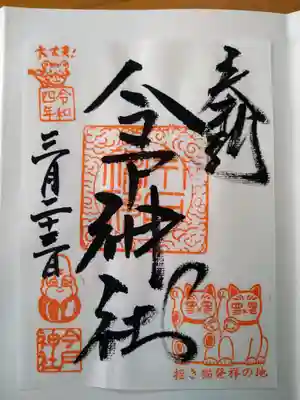 奉拝
今戸神社
大丈夫!
令和
四年
三月二十三日
今戸
神社
招き猫発祥の地